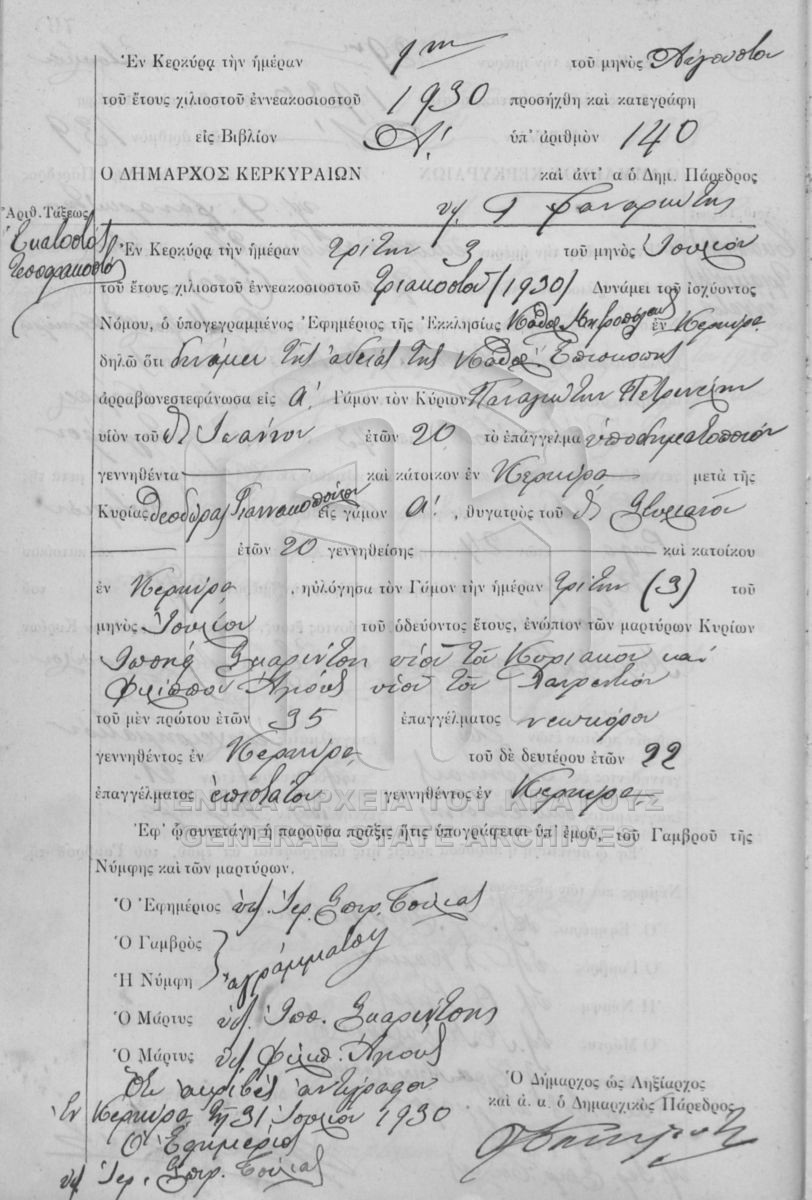 Ἐν Κερκύρᾳ τὴν ἡμέραν 1ην τοῦ μηνὸς Αὐγούστου
τοῦ ἔτους χιλιοστοῦ ἐννεακοσιοστοῦ 1930 προσήχθη καὶ κατεγράφη
εἰς Βιβλίον Α! ὑπ' ἀριθμὸν 140
Ο ΔΗΜΑΡΧΟΣ ΚΕΡΚΥΡΑΙΩΝ καὶ ἀντ' α ὁ Δημ. Πάρεδρος
Ἀριθ. Τάξεως
Ἑκατοστὸς
τεσσαρακοστὸς
Ἐν Κερκύρᾳ τὴν ἡμέραν τρίτην 3 τοῦ μηνὸς Ἰουλίου
τοῦ ἔτους χιλιοστοῦ ἐννεακοσιοστοῦ τριακοστοῦ (1930) Δυνάμει τοῦ ἰσχύοντος
Νόμου, ὁ ὑπογεγραμμένος Ἐφημέριος τῆς Ἐκκλησίας Καθολ. Μητροπόλεως ἐν Κερκύρᾳ
δηλῶ ὅτι δυνάμει τῆς ἀδείας τῆς Καθολ. Ἐπισκοπῆς
ἀρραβωνεστεφάνωσα εἰς Α! Γάμον τὸν Κύριον Παναγιώτην
υἱὸν τοῦ Ἰωάννου ἐτῶν 20 τὸ ἐπάγγελμα ὑποδηματοποιὸν
γεννηθέντα καὶ κάτοικον ἐν Κερκύρᾳ μετὰ τῆς
Κυρίας Θεοδώρας Γιαννακοπούλου εἰς γάμον Α! , θυγατρὸς τοῦ
ἐτῶν 20 γεννηθείσης καὶ κατοίκου
ἐν Κερκύρᾳ , ηὐλόγησα τὸν Γάμον τὴν ἡμέραν τρίτην (3) τοῦ
μηνὸς Ἰουλίου τοῦ ὁδεύοντος ἔτους, ἐνώπιον τῶν μαρτύρων Κυρίων
Ἰωσὴφ Σκαρέντζη υἱοῦ τοῦ Κυριακοῦ καὶ
Φιλίππου υἱοῦ τοῦ Λαυρεντίου
τοῦ μὲν πρώτου ἐτῶν 35 ἐπαγγέλματος νεωκόρου
γεννηθέντος ἐν Κερκύρᾳ τοῦ δὲ δευτέρου ἐτῶν 22
ἐπαγγέλματος γεννηθέντος ἐν Κερκύρᾳ
ΓΕΝΙΚΑ ΑΡΧΕΙΑ ΤΟΥ ΚΡΑΤΟΥΣ
GENERAL STATE ARCHIVES
Ἐφ' ᾧ συνετάγη ἡ παροῦσα πρᾶξις ἥτις ὑπογράφεται ὑπ' ἐμοῦ, τοῦ Γαμβροῦ τῆς
Νύμφης καὶ τῶν μαρτύρων.
Ὁ Ἐφημέριος ὑπ. Ἱερ. Σπυρ.
Ὁ Γαμβρὸς
ἀγράμματοι
Ἡ Νύμφη
Ὁ Μάρτυς ὑπ. Ἰωσ. Σκαρέντζης
Ὁ Μάρτυς ὑπ. Φιλιπ.
Ὅτι ἀκριβὲς ἀντίγραφον
Ἐν Κερκύρᾳ τῇ 31 Ἰουλίου 1930
Ὁ Ἐφημέριος
ὑπ. Ἱερ. Σπυρ.
Ὁ Δήμαρχος ὡς Ληξίαρχος
καὶ ἀ. α. ὁ Δημαρχικὸς Πάρεδρος